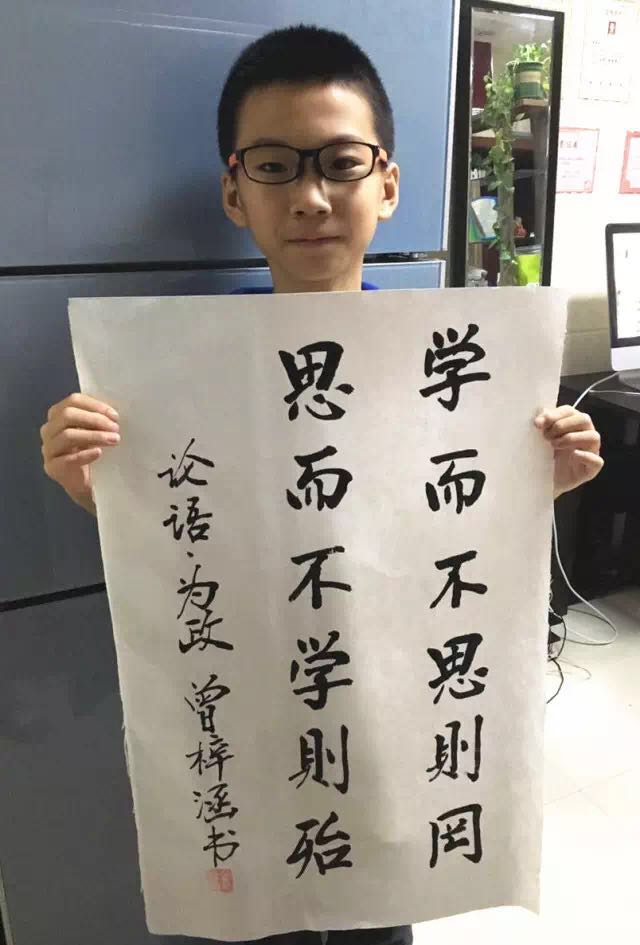 学而不思則罔
思而不学則殆
论语·为政 曾梓涵书